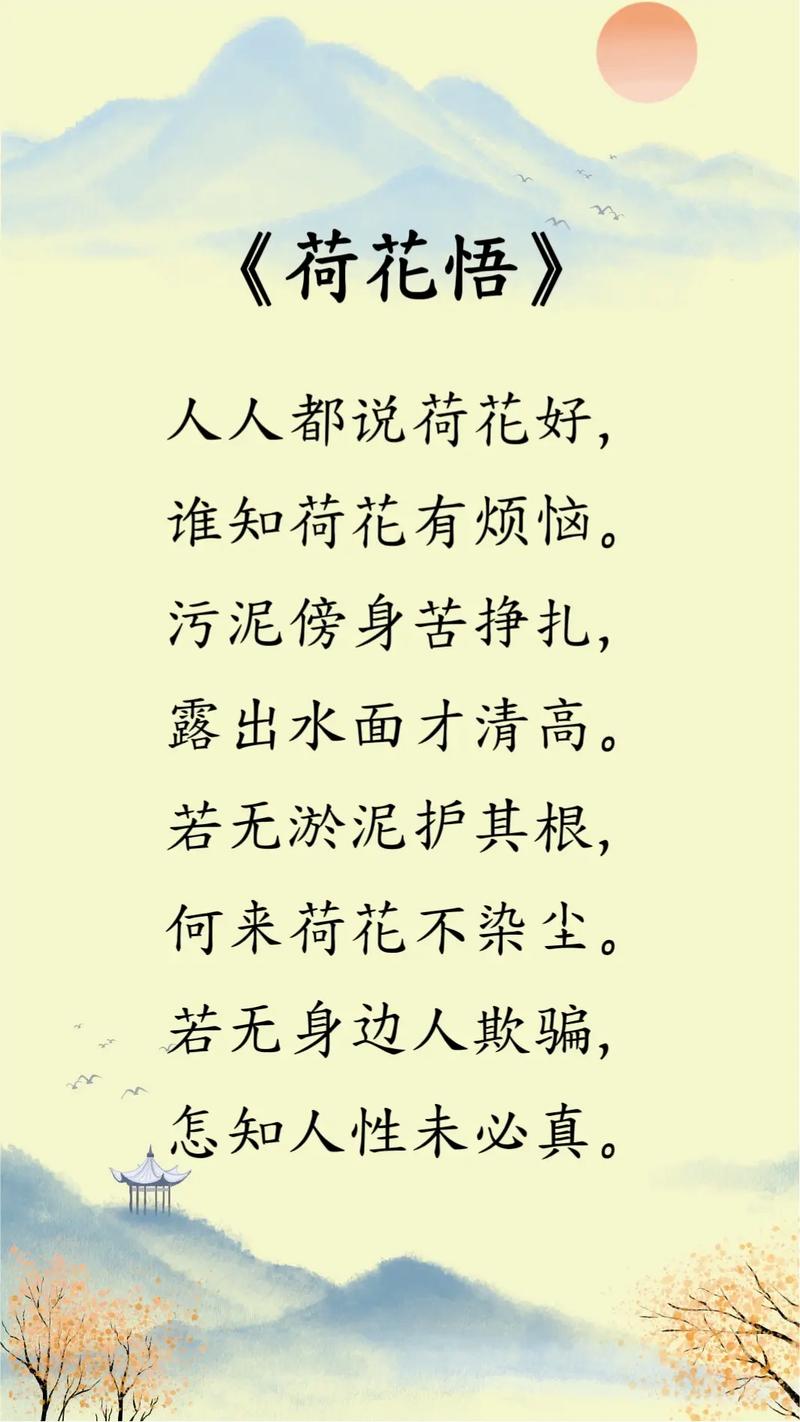 《荷花悟》
人人都说荷花好,
谁知荷花有烦恼。
污泥傍身苦挣扎,
露出水面才清高。
若无淤泥护其根,
何来荷花不染尘。
若无身边人欺骗,
怎知人性未必真。